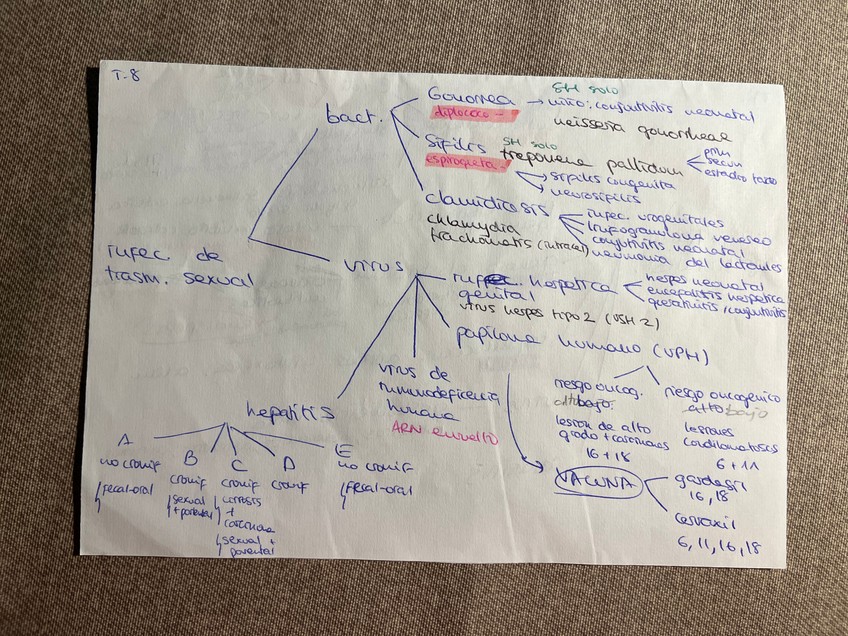 T-8
SH solo
bact.
Gonorrea → niño: conjuntivitis neonatal
diplococo -
neisseria gonorrheae
Sífilis
SH solo
espiroqueta -
treponema pallidum
prim
secun
estadío tardío
sífilis congenita
neurosífilis
clamidiosis
chlamydia
trachomatis (intracel)
infec. urogenitales
linfogranuloma venereo
conjutivitis neonatal
neumonía del lactantes
infec. de
trasm. sexual
virus
infec. herpetica
genital
virus herpes tipo 2 (VSH-2)
herpes neonatal
encefalitis herpetica
queratitis/conjutivitis
papiloma humano (VPH)
riesgo oncog.
bajo.
lesion de alto
grado + carcinomas
16 + 18
riesgo oncogenico
alto bajo
lesiones
condilomatosas
6 + 11
virus de
inmunodeficiencia
humana
ARN envuelto
VACUNA
gardasil
16, 18
cervaxil
6, 11, 16, 18
hepatitis
A
no cronif
fecal-oral
B
cronif
sexual
+ parental
C
cronif
cirrosis
+
carcinoma
sexual +
parental
D
cronif
E
no cronif
fecal-oral